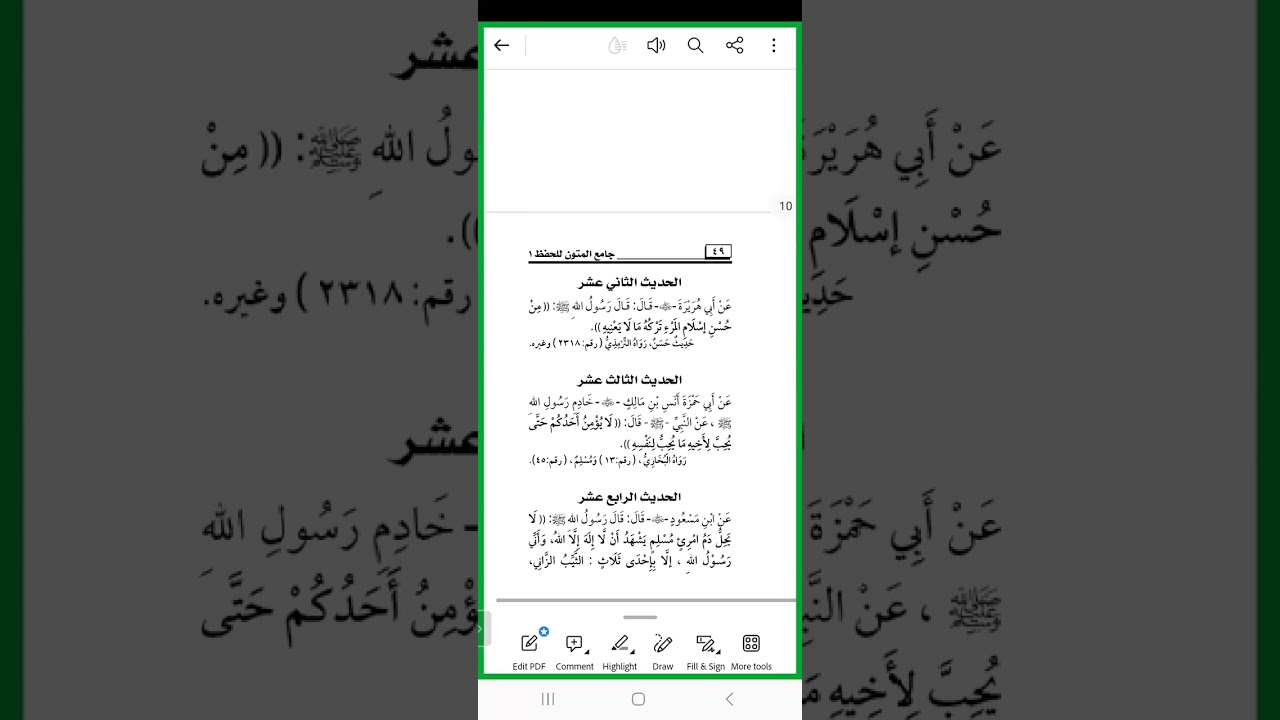 10
٤٩ جامع المتون للحفظ ١
الحديث الثاني عشر
عَنْ أَبِي هُرَيْرَةَ -رضي الله عنه- قَالَ: قَالَ رَسُولُ اللهِ ﷺ: (( مِنْ
حُسْنِ إِسْلَامِ المَرْءِ تَرْكُهُ مَا لَا يَعْنِيهِ )).
حَدِيثٌ حَسَنٌ، رَوَاهُ التِّرْمِذِيُّ ( رقم: ٢٣١٨ ) وغيره.
الحديث الثالث عشر
عَنْ أَبِي حَمْزَةَ أَنَسِ بْنِ مَالِكٍ -رضي الله عنه- خَادِمِ رَسُولِ اللهِ
ﷺ ، عَنْ النَّبِيِّ -ﷺ- قَالَ: (( لَا يُؤْمِنُ أَحَدُكُمْ حَتَّى
يُحِبَّ لِأَخِيهِ مَا يُحِبُّ لِنَفْسِهِ )).
رَوَاهُ البُخَارِيُّ ، ( رقم: ١٣ ) وَمُسْلِمٌ ، ( رقم: ٤٥).
الحديث الرابع عشر
عَنْ ابْنِ مَسْعُودٍ -رضي الله عنه- قَالَ: قَالَ رَسُولُ اللهِ ﷺ: (( لَا
يَحِلُّ دَمُ امْرِئٍ مُسْلِمٍ يَشْهَدُ أَنْ لَا إِلَهَ إِلَّا اللهُ، وَأَنِّي
رَسُوْلُ اللهِ ، إِلَّا بِإِحْدَى ثَلَاثٍ : الثَّيِّبُ الزَّانِي،
Edit PDF Comment Highlight Draw Fill & Sign More tools
عشر
عَنْ أَبِي هُرَيْرَ ولُ اللهِ ﷺ: (( مِنْ
حُسْنِ إِسْلَامِ )).
حَدِي رقم: ٢٣١٨ ) وغيره.
عشر
عَنْ أَبِي حَمْزَةَ - خَادِمِ رَسُولِ اللهِ
ﷺ ، عَنْ النَّ ؤْمِنُ أَحَدُكُمْ حَتَّى
يُحِبَّ لِأَخِيهِ مَ